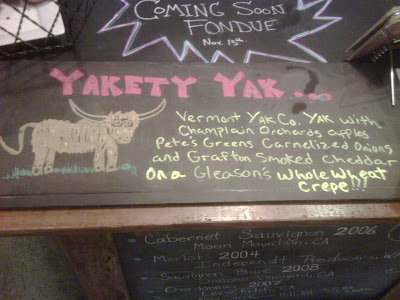 COMING SOON
FONDUE
Nov. 13th.
YAKETY YAK...?
VERMONT YAK CO. YAK WITH
CHAMPLAIN ORCHARDS APPLES
PETE'S GREENS CARMELIZED ONIONS
AND GRAFTON SMOKED CHEDDAR
ON A GLEASON'S WHOLE WHEAT
CREPE!!!
• CABERNET SAUVIGNON 2006
MOON MOUNTAIN, CA
• MERLOT 2004
INDEPENDT PRODUCERS, W
• SAUVIGNON BLANC 2008
• CHARDONNAY 2007